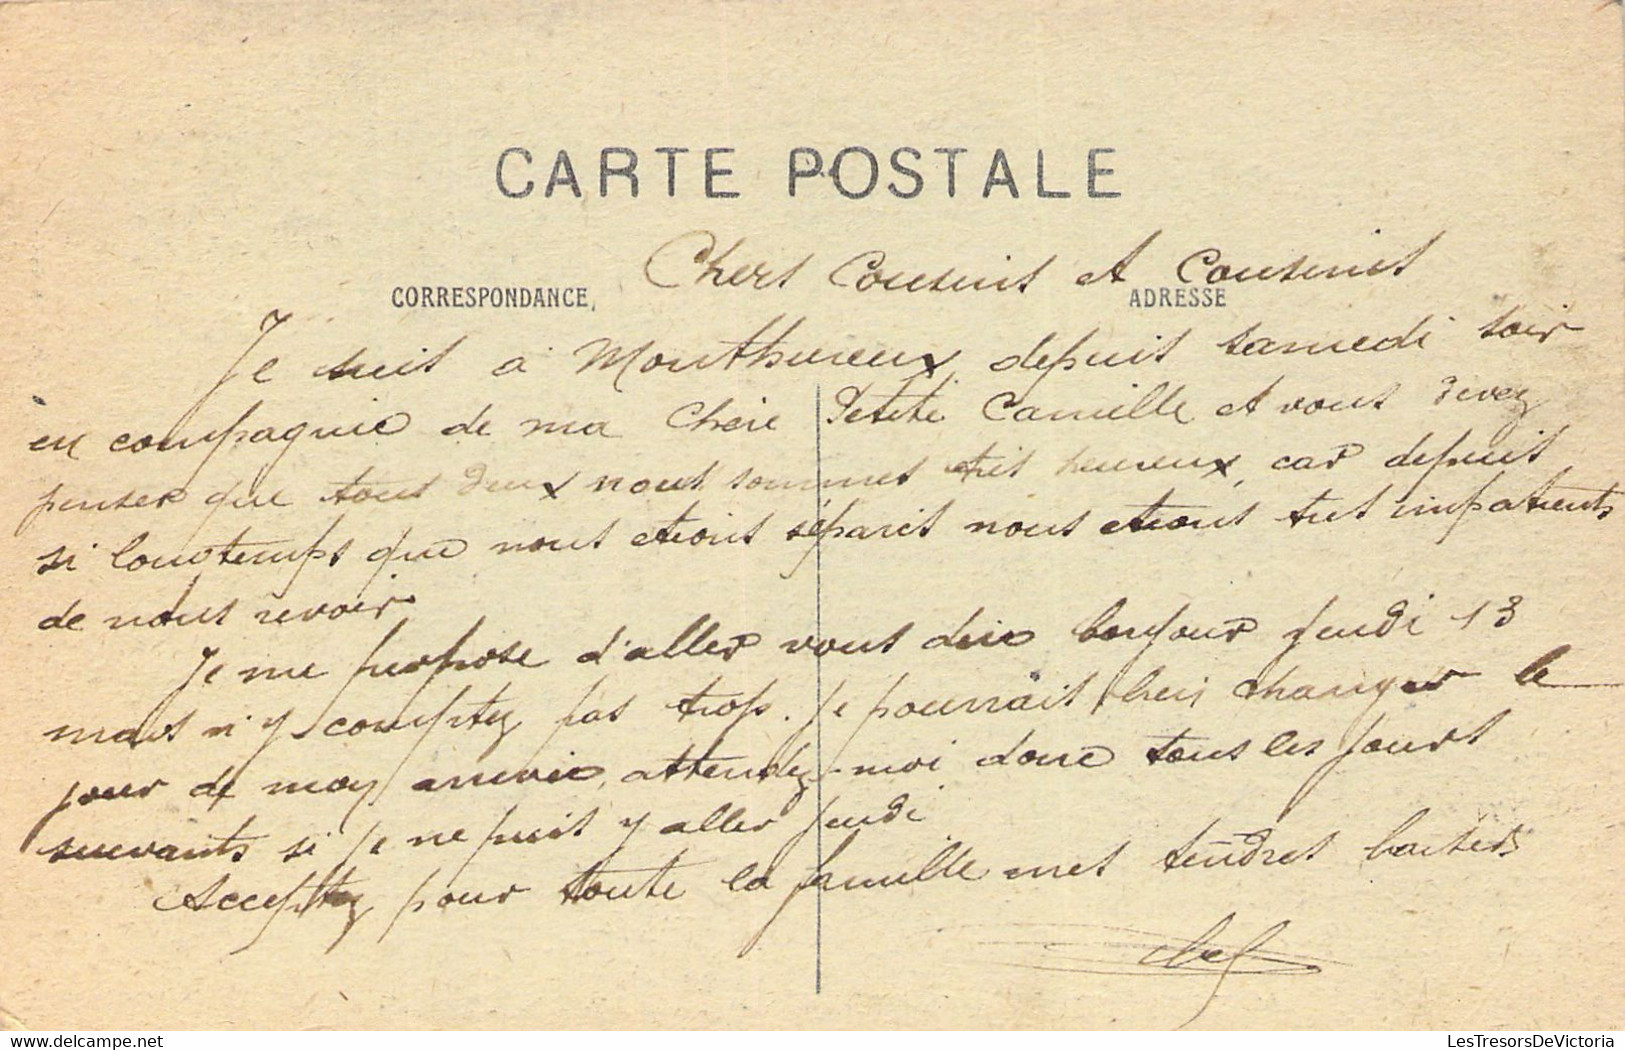 CARTE POSTALE
Chers Cousins et Cousines
CORRESPONDANCE
ADRESSE
Je suis à Monthureux depuis samedi soir
en compagnie de ma chère Petite Camille et vous devez
penser que tous deux nous sommes très heureux, car depuis
si longtemps que nous etions séparés nous etions très impatients
de nous revoir
Je me propose d'aller vous dire bonjour jeudi 13
mais n'y comptez pas trop. je pourrais bien changer le
jour de mon arrivée, attendez-moi donc tous les jours
suivants si je ne puis y aller jeudi
Acceptez pour toute la famille mes tendres baisers
www.delcampe.net
LesTresorsDeVictoria